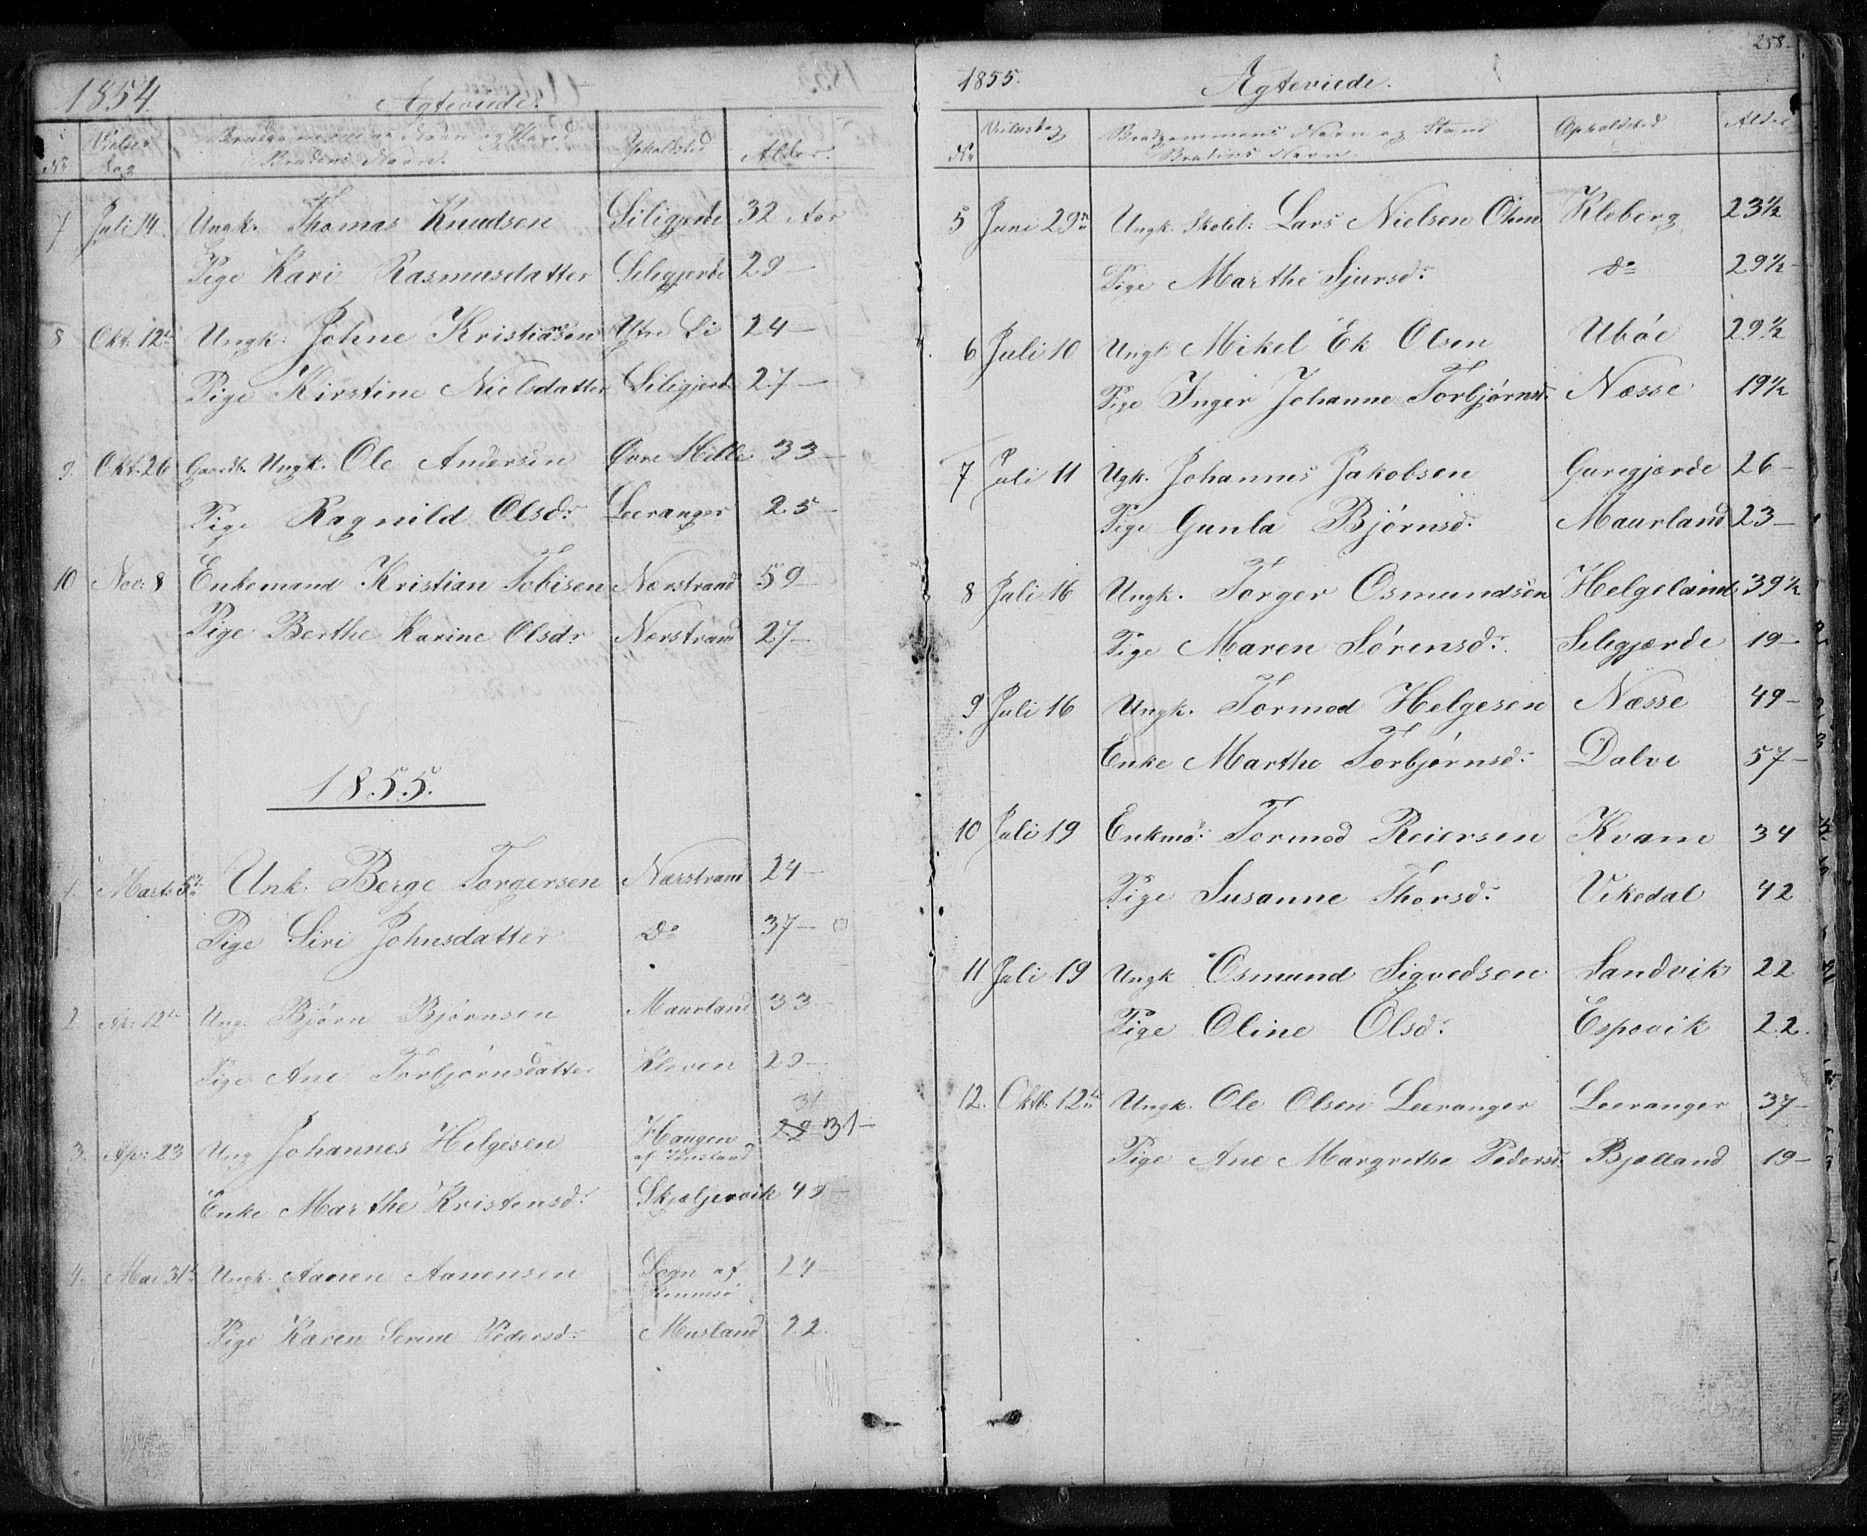 1854
Ægteviede.
No
Vielses
dag
Brudgommens Navn og Stand
Brudens Navn.
Opholdsted
Alder.
7 Juli 14. Ungk. Thomas Knudsen Siligjerde 32 Aar
Pige Kari Rasmusdatter Siligjerde 29 —
8 Okt. 12te Ungk. Johne Kristiansen Ytre Li 24 —
Pige Kirstine Nielsdatter Siligjerde 27 —
9. Okt. 26 Gaardb. Ungk. Ole Andersen Øvre Hille 33 —
Pige Ragnild Olsdr Leeranger 25 —
10 Nov: 8 Enkemand Kristian Tobisen Nærstrand 59 —
Pige Berthe Karine Olsdr Nærstrand 27 —
1855.
1. Marts 5te Unk. Berge Torgersen Nærstrand 24 —
Pige Siri Johnsdatter Do 37 —
2. Ap: 12te Ung. Bjørn Bjørnsen Maurland 33 —
Pige Ane Torbjørnsdatter Kleven 29 —
31
3. Ap: 23 Ung Johannes Helgesen Haugen 29 31 —
af
Enke Marthe Kristensdr Skjøljevik 49 —
4. Mai 31te Ungk. Aanen Aanensen Sogn af 24 —
Rennesø
Pige Karen Serine Pedersdr Musland 22.
258.
1855.
Ægteviede.
No
Vielsesdag
Brudgommens Navn og Stand
Brudens Navn.
Opholdsted
Alder
5 Juni 29de Ungk. Skolel: Lars Nielsen Ohm Kleberg 23½
Pige Marthe Sjursdr Do 29½ —
6 Juli 10 Ungk Mikel Ek Olsen Ubøe 29½
Pige Inger Johanne Torbjørnsdr Næsse 19½
7 Juli 11 Ugk. Johannes Jakobsen Guregjærde 26 —
Pige Gunla Bjørnsdr Maurland 23 —
8 Juli 16 Ungk. Torger Osmundsen Helgeland 39½
Pige Maren Sørensdr Seligjærde 19 —
9 Juli 16 Ungk. Tormod Helgesen Næsse 49 —
Enke Marthe Torbjørnsdr Dalve 57 —
10 Juli 19 Enkmd: Tormod Reiersen Kvam 34
Pige Susanne Thorsdr Vikedal 42
11 Juli 19 Ungk Osmund Sigvedsen Sandvik 22
Pige Oline Olsdr Espevik 22.
12. Oktb. 12te Ungk. Ole Olsen Leeranger Leeranger 37 —
Pige Ane Margrethe Pedersdr Bjelland 19 —